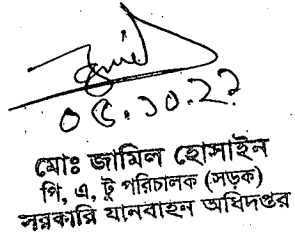 Jamil
০৫.১০.২২
মোঃ জামিল হোসাইন
পি, এ, টু পরিচালক (সড়ক)
সরকারি যানবাহন অধিদপ্তর